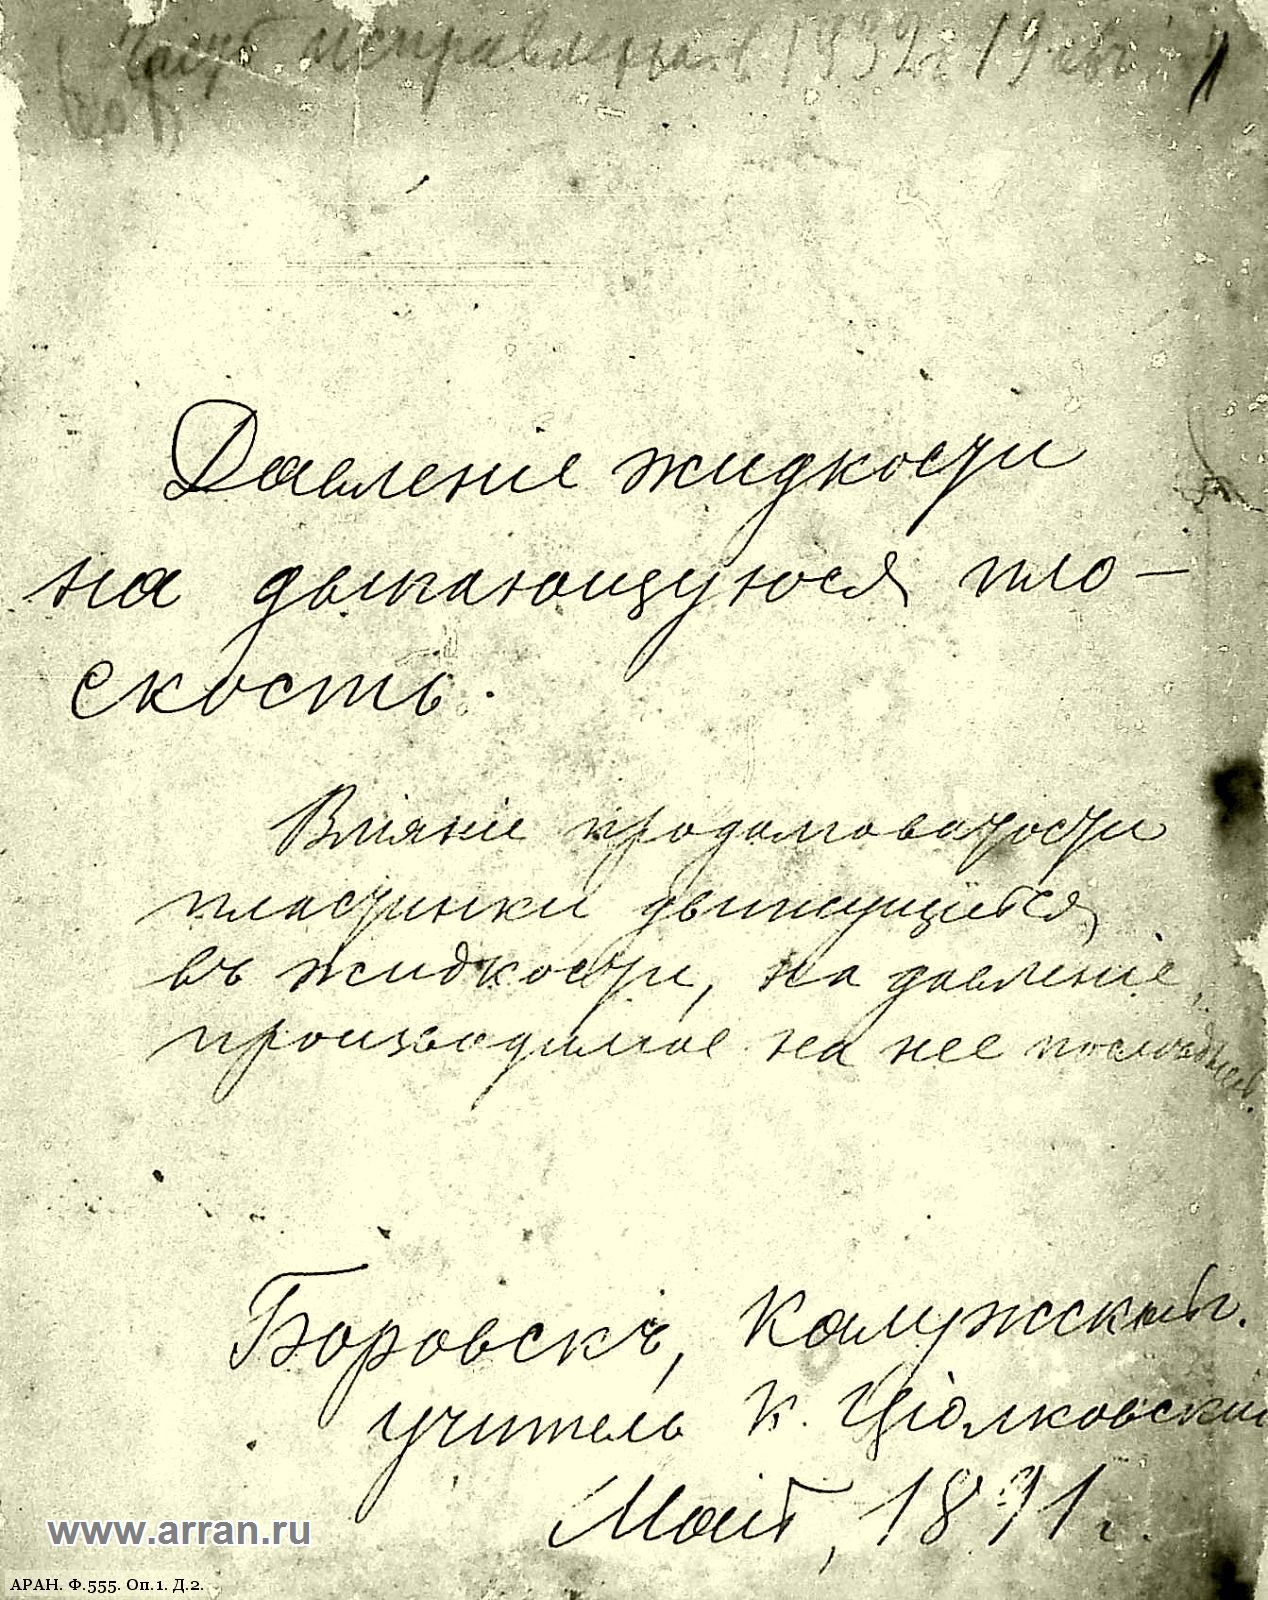 исправлена в 1932 г 19 авг
1
Давленіе жидкости
на двигающуюся пло-
скость.
Вліяніе продолговатости
пластинки движущейся
въ жидкости, на давленіе,
производимое на нее последней.
Боровскъ, Калужской г.
учитель К. Ціолковскій
Май, 1891 г.
www.arran.ru
АРАН. Ф.555. Оп.1. Д.2.